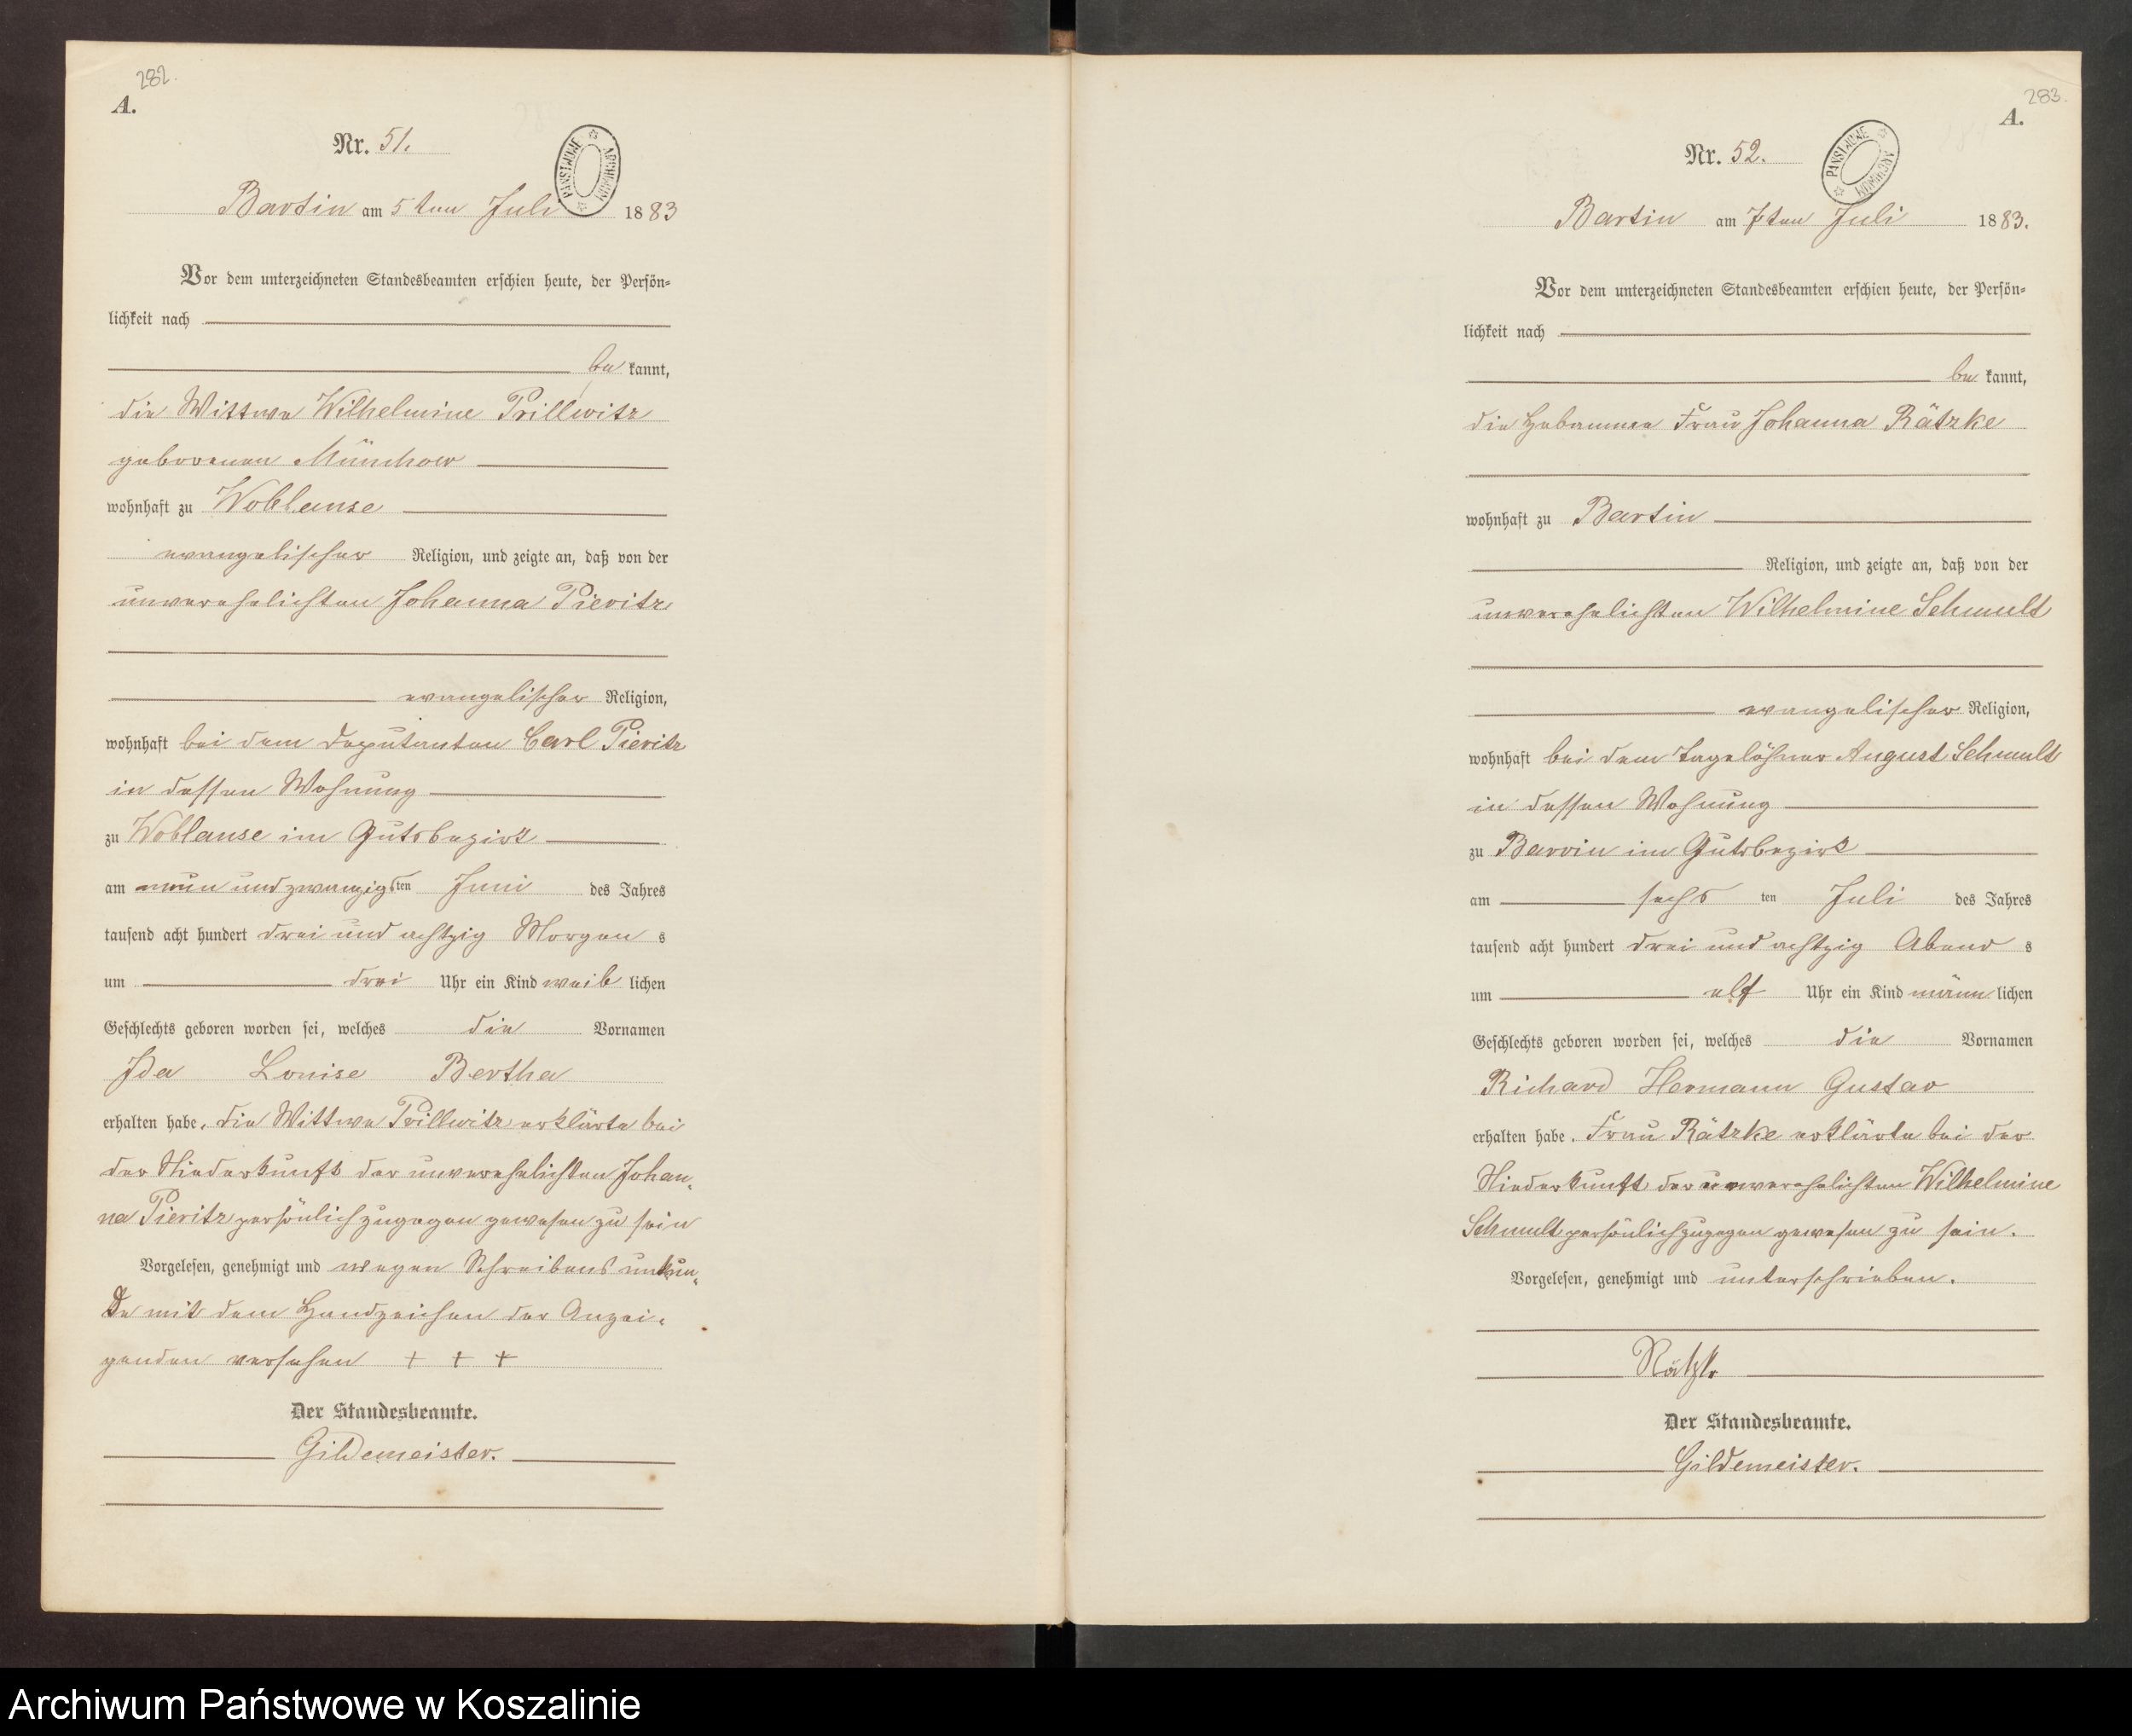 282.
A.
Nr. 51.
PAŃSTWOWE ARCHIWUM
Bartin am 5 ten Juli 1883
Vor dem unterzeichneten Standesbeamten erschien heute, der Persön-
lichkeit nach
be kannt,
die Wittwe Wilhelmine Prillwitz
geborenen Münchow
wohnhaft zu Woblanse
evangelischer Religion, und zeigte an, daß von der
unverehelichten Johanna Pieritz
evangelischer Religion,
wohnhaft bei dem Deputanten Carl Pieritz
in dessen Wohnung
zu Woblanse im Gutsbezirk
am neun und zwanzigsten Juni des Jahres
tausend acht hundert drei und achtzig Morgen s
um drei Uhr ein Kind weib lichen
Geschlechts geboren worden sei, welches die Vornamen
Ida Louise Bertha
erhalten habe. die Wittwe Prillwitz erklärte bei
der Niederkunft der unverehelichten Johan-
na Pieritz persönlich zugegen gewesen zu sein
Vorgelesen, genehmigt und wegen Schreibens unkun-
de mit dem Handzeichen der Anzei-
genden versehen + + +
Der Standesbeamte.
Gildemeister.
283.
A.
Nr. 52.
PAŃSTWOWE ARCHIWUM
Bartin am 7ten Juli 1883.
Vor dem unterzeichneten Standesbeamten erschien heute, der Persön-
lichkeit nach
be kannt,
die Hebamme Frau Johanna Rätzke
wohnhaft zu Bartin
Religion, und zeigte an, daß von der
unverehelichten Wilhelmine Schmult
evangelischer Religion,
wohnhaft bei dem Tagelöhner August Schmult
in dessen Wohnung
zu Barvin im Gutsbezirk
am sechs ten Juli des Jahres
tausend acht hundert drei und achtzig Abend s
um elf Uhr ein Kind männ lichen
Geschlechts geboren worden sei, welches die Vornamen
Richard Hermann Gustav
erhalten habe. Frau Rätzke erklärte bei der
Niederkunft der unverehelichten Wilhelmine
Schmult persönlich zugegen gewesen zu sein.
Vorgelesen, genehmigt und unterschrieben.
Rätzke
Der Standesbeamte.
Gildemeister.
Archiwum Państwowe w Koszalinie